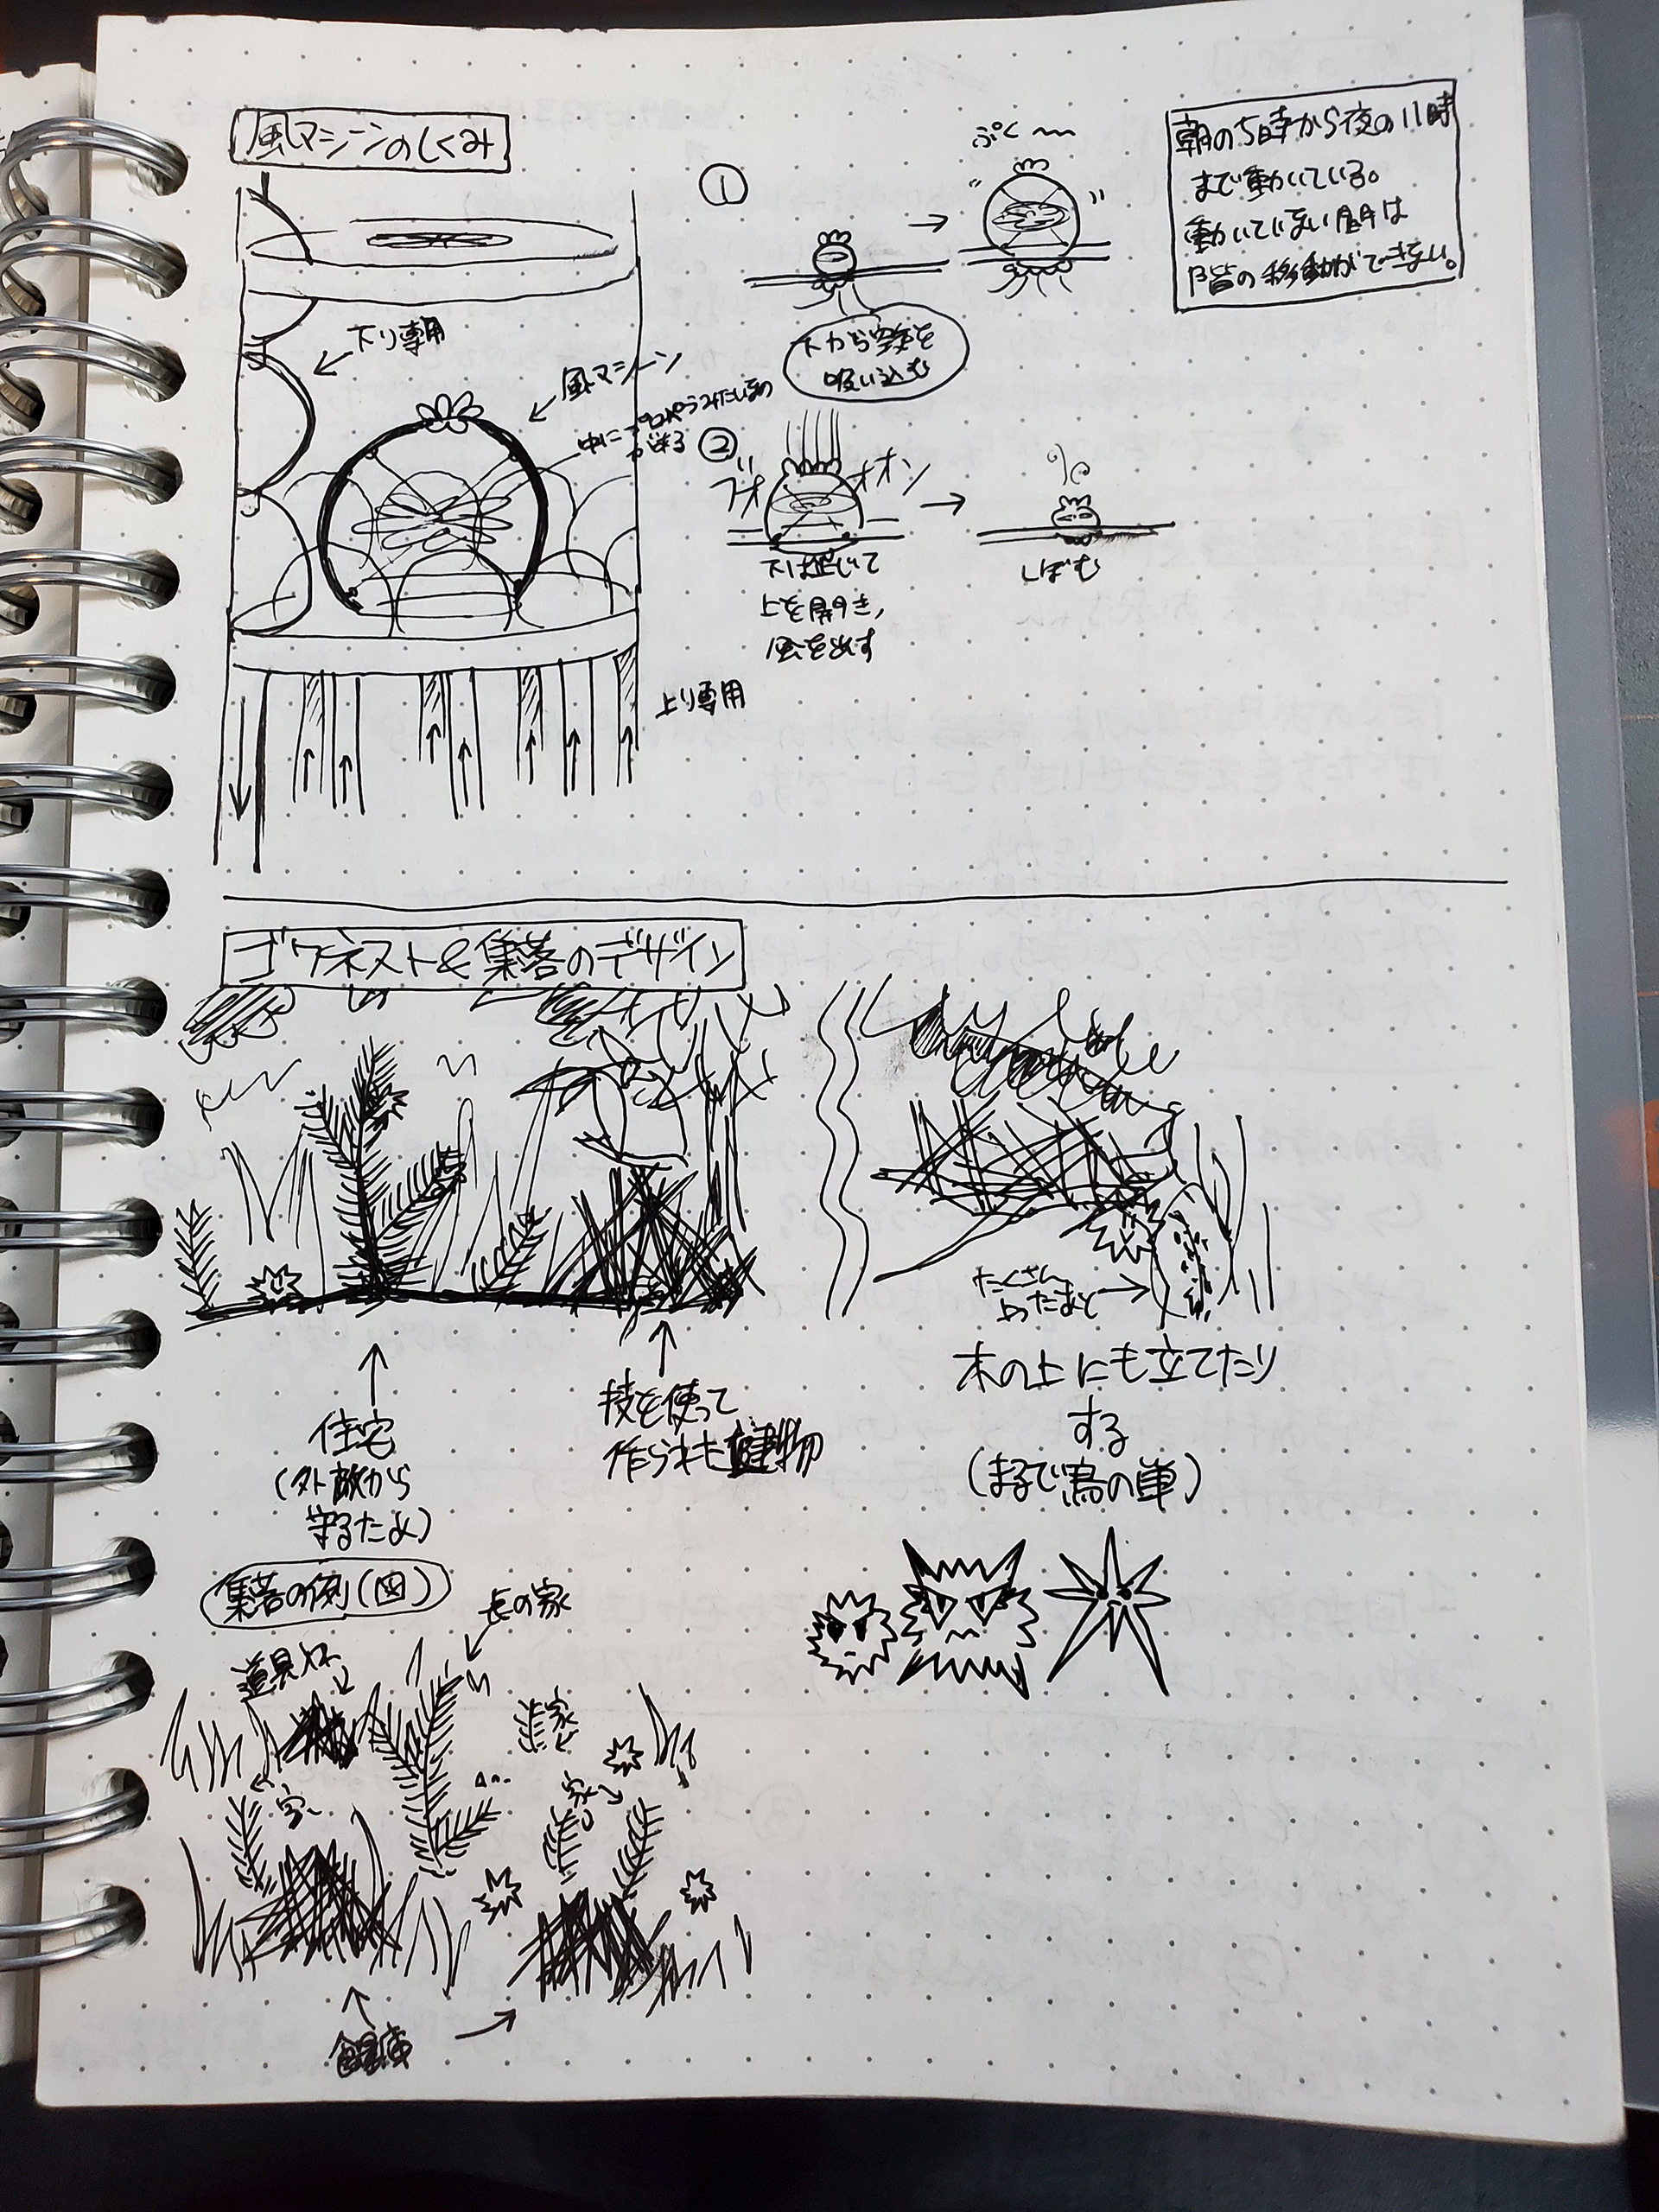 風マシーンのしくみ
①
ぷく〜〜
朝の5時から夜の11時
まで動いている。
動いていない間は
階の移動ができない。
下から空気を
吸い込む
下り専用
風マシーン
中にプロペラみたいなの
がある
②
ブオ
オオン
下は閉じて
上を開き,
風を出す
しぼむ
上り専用
ゴワネスト&集落のデザイン
たくさん
よったあと
木の上にも立てたり
する
(まるで鳥の巣)
住宅
(外敵から
守るため)
技を使って
作られた建物
集落の例(図)
長の家
道具
家
家
家
食糧庫